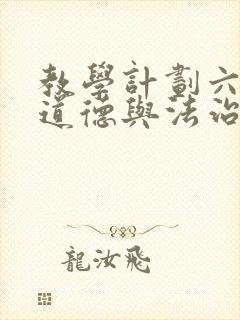 教學計劃六
道德與法治
龍汝飛